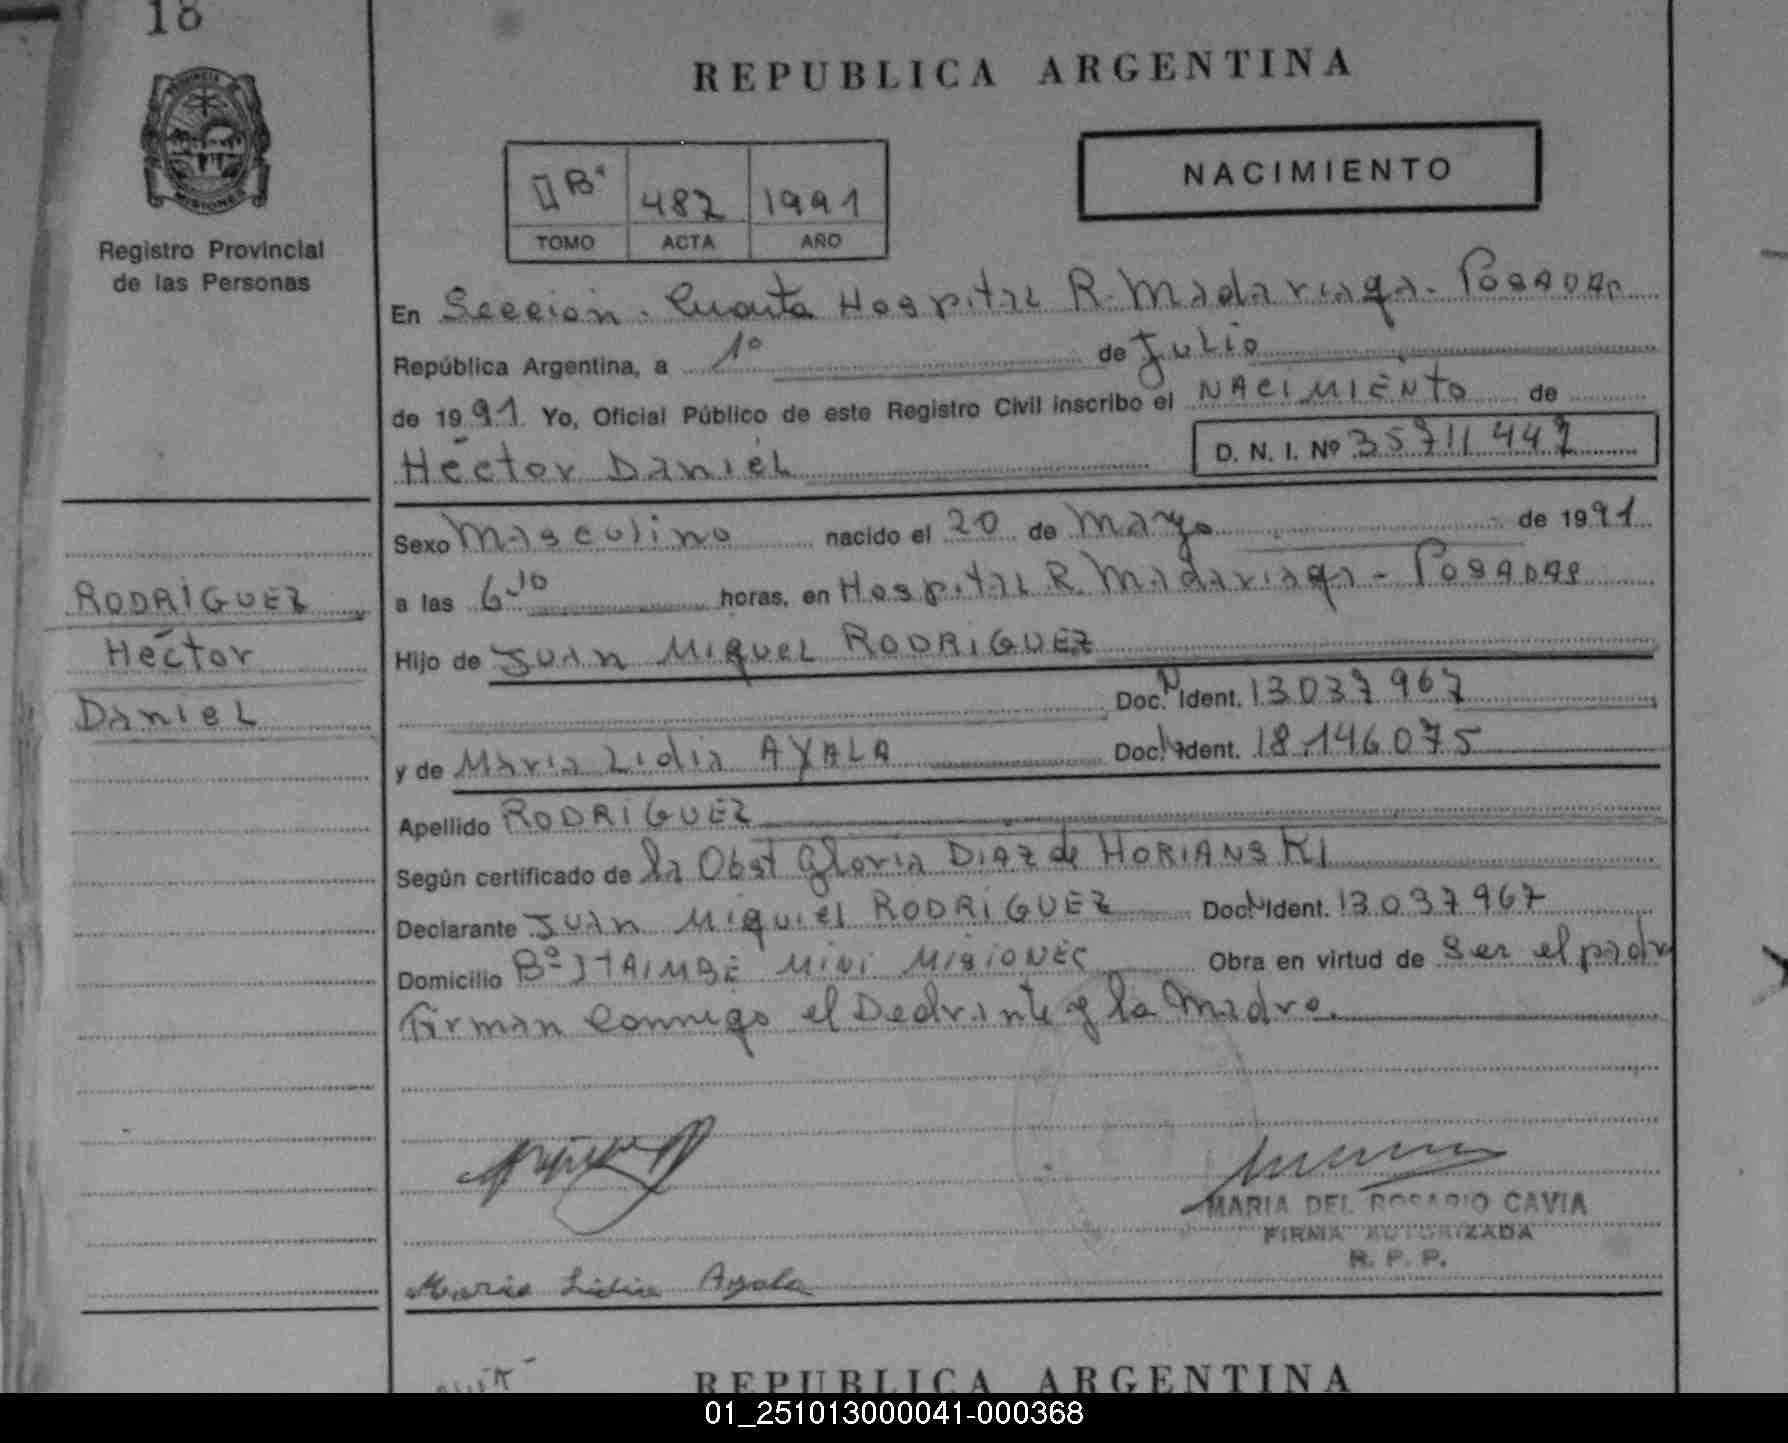 18
REPUBLICA ARGENTINA
PROVINCIA
MISIONES
Registro Provincial
de las Personas
NACIMIENTO
II Bº 482 1991
TOMO ACTA AÑO
En Sección. Cuarta Hospital R. Madariaga - POSADAS
República Argentina, a 1º de Julio
de 1991 Yo, Oficial Público de este Registro Civil inscribo el NACIMIENTO de
Héctor Daniel D. N. I. Nº 35711447
Sexo Masculino nacido el 20 de Mayo de 1991
RODRIGUEZ
Héctor
Daniel
a las 6 horas, en Hospital R. Madariaga - POSADAS
Hijo de Juan Miguel RODRIGUEZ
Doc. N Ident. 13.037.967
y de Maria Lidia AYALA Doc. N Ident. 18.146.075
Apellido RODRIGUEZ
Según certificado de la Obst Gloria DIAZ de HORIANSKI
Declarante Juan Miguel RODRIGUEZ Doc. N Ident. 13.037.967
Domicilio Bº ITAIMBE MINI MISIONES Obra en virtud de ser el padre
Firman conmigo el Declarante y la Madre.
MARIA DEL ROSARIO CAVIA
FIRMA AUTORIZADA
R. P. P.
Maria Lidia Ayala
REPUBLICA ARGENTINA
01_251013000041-000368